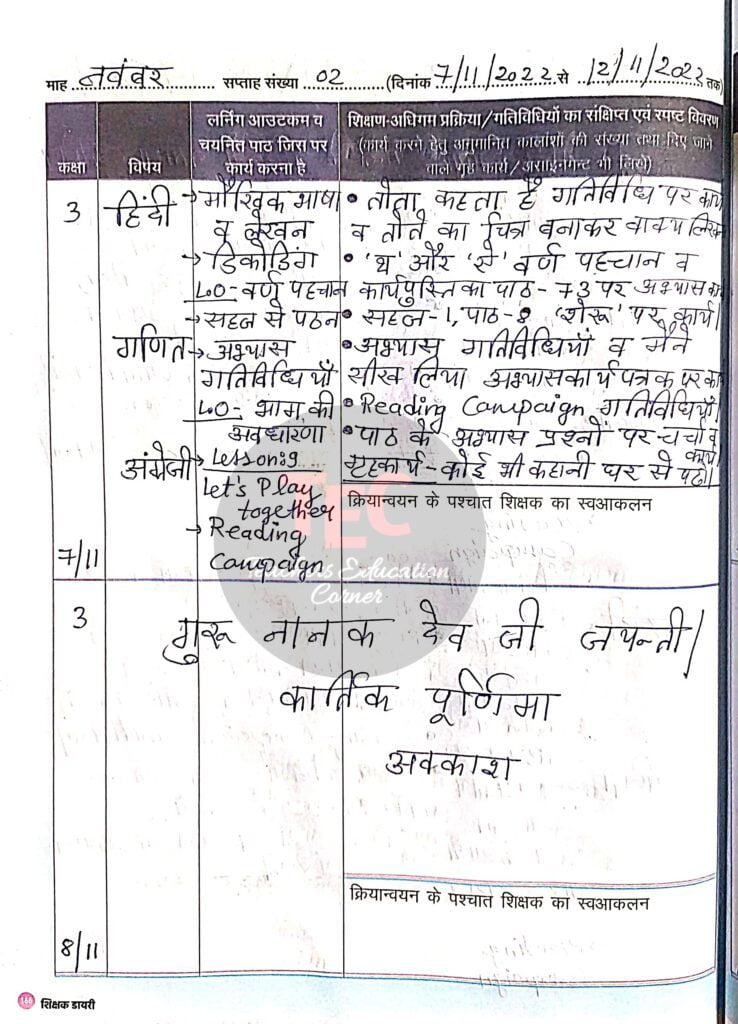 माह नवंबर सप्ताह संख्या 02 (दिनांक 7/11/2022 से 12/11/2022 तक)
कक्षा
विषय
लर्निंग आउटकम व
चयनित पाठ जिस पर
कार्य करना है
शिक्षण-अधिगम प्रक्रिया/गतिविधियों का संक्षिप्त एवं स्पष्ट विवरण
(कार्य करने हेतु अनुमानित कालांशों की संख्या तथा दिए जाने
वाले गृह कार्य/असाइनमेण्ट भी लिखें)
3
हिंदी
→ मौखिक भाषा
व लेखन
→ डिकोडिंग
LO- वर्ण पहचान
→ सहज से पठन
गणित
→ अभ्यास
गतिविधियाँ
LO- भाग की
अवधारणा
अंग्रेजी
→ Lesson:9
Let's Play
together
→ Reading
Campaign
• तोता कहता है गतिविधि पर कार्य
व तोते का चित्र बनाकर वाक्य
• 'थ' और 'से' वर्ण पहचान व
कार्यपुस्तिका पाठ-73 पर अभ्यास
• सहज-1, पाठ-8 'शेरू' पर कार्य।
• अभ्यास गतिविधियाँ व मैंने
सीख लिया अभ्यासकार्य पत्रक पर
• Reading Campaign गतिविधियाँ।
• पाठ के अभ्यास प्रश्नों पर चर्चा व
कार्य।
गृहकार्य- कोई भी कहानी घर से पढ़ो।
क्रियान्वयन के पश्चात शिक्षक का स्वआकलन
7/11
TEC
Teachers Education
Corner
3
गुरू नानक देव जी जयन्ती/
कार्तिक पूर्णिमा
अवकाश
क्रियान्वयन के पश्चात शिक्षक का स्वआकलन
8/11
166 शिक्षक डायरी